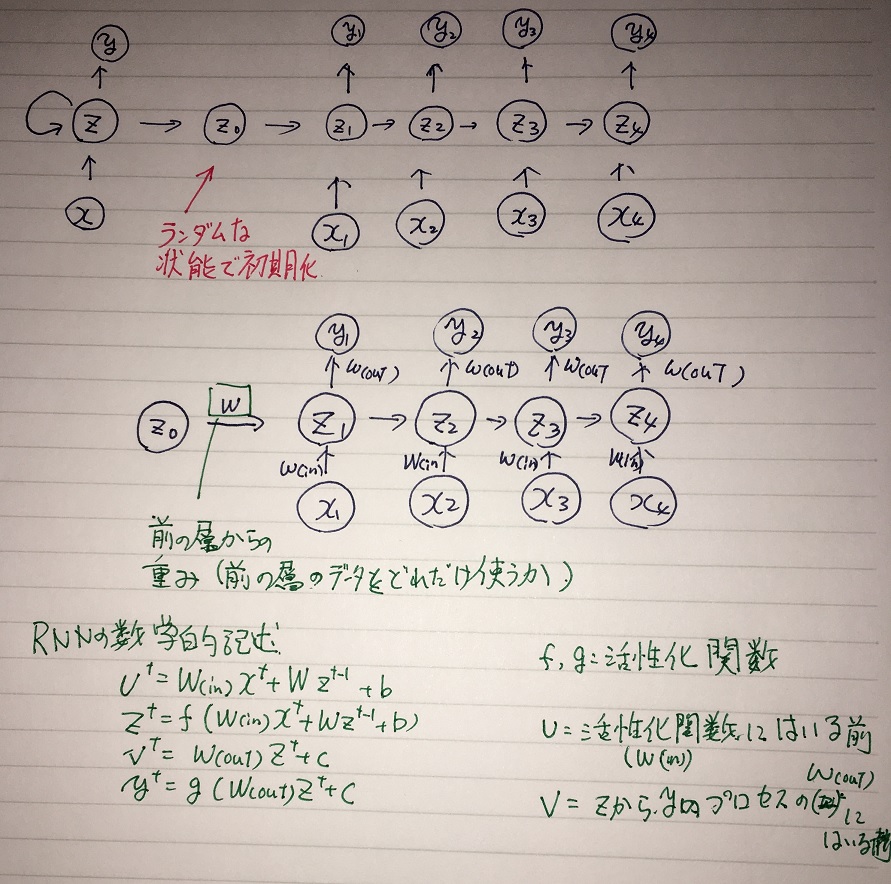 y y₁ y₂ y₃ y₄
z z₀ z₁ z₂ z₃ z₄
x x₁ x₂ x₃ x₄
ランダムな
状態で初期化
y₁ y₂ y₃ y₄
W(out) W(out) W(out W(out)
z₀ W z₁ z₂ z₃ z₄
W(in) W(in W(in) W(in)
x₁ x₂ x₃ x₄
前の層からの
重み(前の層のデータをどれだけ使うか)
RNNの数学的記述
Uᵗ=W(in)xᵗ+Wzᵗ⁻¹+b
zᵗ=f(W(in)xᵗ+Wzᵗ⁻¹+b)
vᵗ=W(out)zᵗ+c
yᵗ=g(W(out)zᵗ+c
f,g=活性化関数
U=活性化関数にはいる前
(W(in)
W(out)
V=zからyのプロセスの
に
はいる前